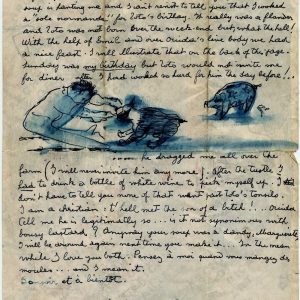 roux is panting me and I can't resist to tell you that I cooked
a "sole normande" for Toto's birthday. It really was a flounder
and Toto was not born over the week-end but, what the hell!
With the help of Émil and over Ouida's limp body we had
a nice feast. I will illustrate that on the back of this page.
Sunday was my birthday but Toto would not invite me
for dinner after I had worked so hard for him the day before...
.... he dragged me all over the
farm (I will never invite him any more). After the tustle I
had to drink a bottle of white wine to perk myself up. I
don't have to tell you none of that went past Toto's tonsils.
I am a christian & t'hell with the son of a bitch!... Ouida
tell me he is legitimate so... is it not synonimous with
lousy bastard? Anyway your roux was a dandy, Marguerite
I will be around again next time you make it... In the mean
while I love you both. Pensez à moi quand vous mangez des
moules... and I mean it.
Bonsoir et à bientôt.